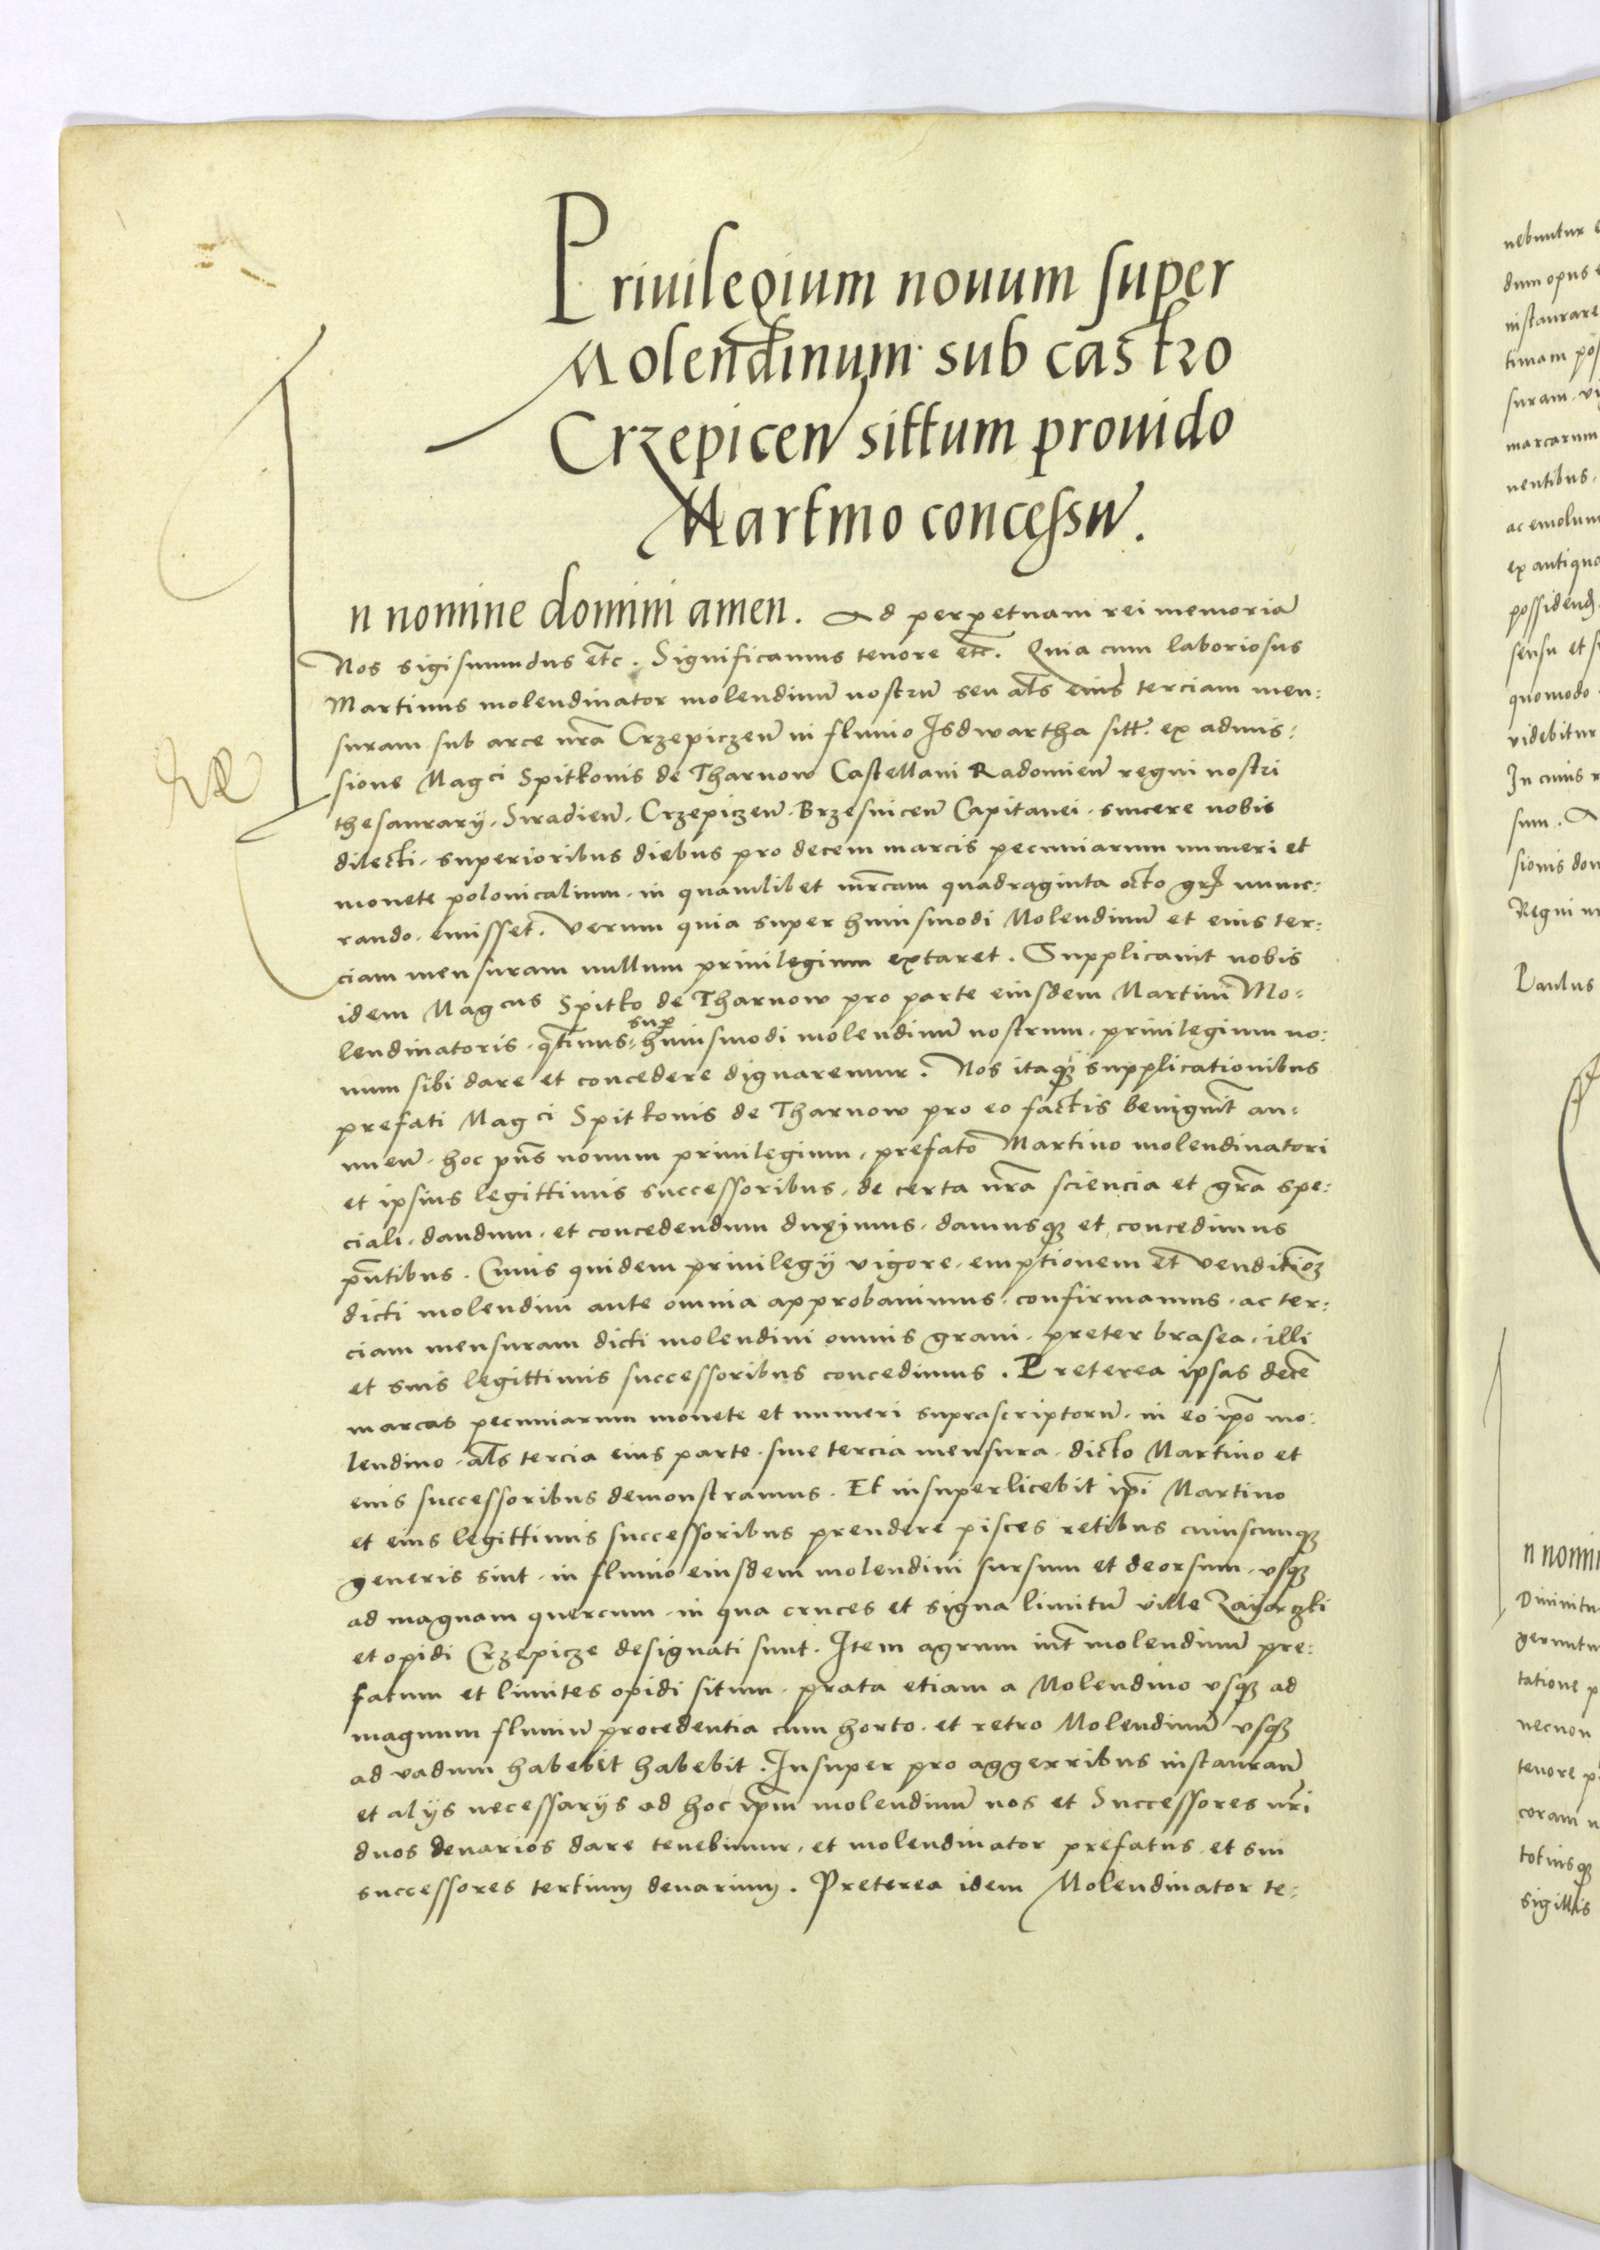 Priuilegium nouum super
Molendinum sub castro
Crzepicen̄ sittum prouido
Martino concessū.
In nomine domini amen. Ad perpetuam rei memoriā
Nos sigismundus etc̄. Significamus tenore etc̄. Quia cum laboriosus
Martinus molendinator molendinū nostrū seu al̄s eius terciam men:
suram sub arce nr̄a Crzepiczen̄ in fluuio Isdwartha sitt̄. ex admis:
sione Magci Spitkonis de Tharnow Castellani Radomien̄ regni nostri
thesaurarÿ. Siradien̄. Crzepiczen̄. Brzesnicen̄ Capitanei. sincere nobis
dilecti. superioribus diebus pro decem marcis pecuniarum numeri et
monete polonicalium. in quamlibet mr̄cam quadraginta octo gr̄ nume:
rando. emisset. Verum quia super huiusmodi Molendinū et eius ter:
ciam mensuram nullum priuilegium extaret. Supplicauit nobis
idem Magcus Spitko de Tharnow pro parte eiusdem Martini Mo:
lendinatoris. q̄tinus sup̄ huiusmodi molendinū nostrum. priuilegium no:
uum sibi dare et concedere dignaremur. Nos itaqꝫ supplicationibus
prefati Magci Spitkonis de Tharnow pro eo factis benignit̄ an:
nuen̄. hoc pn̄s nouum priuilegium. prefato Martino molendinatori
et ipsius legittimis successoribus. de certa nr̄a sciencia et gr̄a spe:
ciali. dandum. et concedendum duximus. damusqꝫ et concedimus
pn̄tibus. Cuius quidem priuilegÿ vigore. emptionem et venditioꝫ
dicti molendini ante omnia approbauimus. confirmamus. ac ter:
ciam mensuram dicti molendini omnis grani. preter brasea. illi
et suis legittimis successoribus concedimus. Preterea ipsas decē
marcas pecuniarum monete et numeri suprascriptorū. in eo ip̄o mo:
lendino. al̄s tercia eius parte. siue tercia mensura. dicto Martino et
eius successoribus demonstramus. Et insuper licebit ip̄i Martino
et eius legittimis successoribus prendere pisces retibus cuiuscunqꝫ
generis sint. in fluuio eiusdem molendini sursum et deorsum. vsqꝫ
ad magnam quercum. in qua cruces et signa limitū ville Zaiaczki
et opidi Crzepicze designati sunt. Item agrum int̄ molendinū pre:
fatum et limites opidi situm. prata etiam a Molendino vsqꝫ ad
magnum fluuiū procedentia cum horto. et retro Molendinū vsqꝫ
ad vadum habebit habebit. Insuper pro aggerribus instauran̄
et alÿs necessarÿs ad hoc ip̄m molendinū nos et Successores nr̄i
duos denarios dare tenebimur. et molendinator prefatus. et sui
successores tertiuꝫ denariuꝫ. Preterea idem Molendinator te:
nebuntur
dum opus
instaurare
timam
suram.
marcarum
uentibus.
ac emolum
ex antiquo
possidend
sensu et
quomodo
videbitur
In cuius
sum.
sionis
Regni
Paulus
n nomi
Diuinitu
geruntu
tatione
necnon
tenore
coram
totiusqꝫ
sigillis